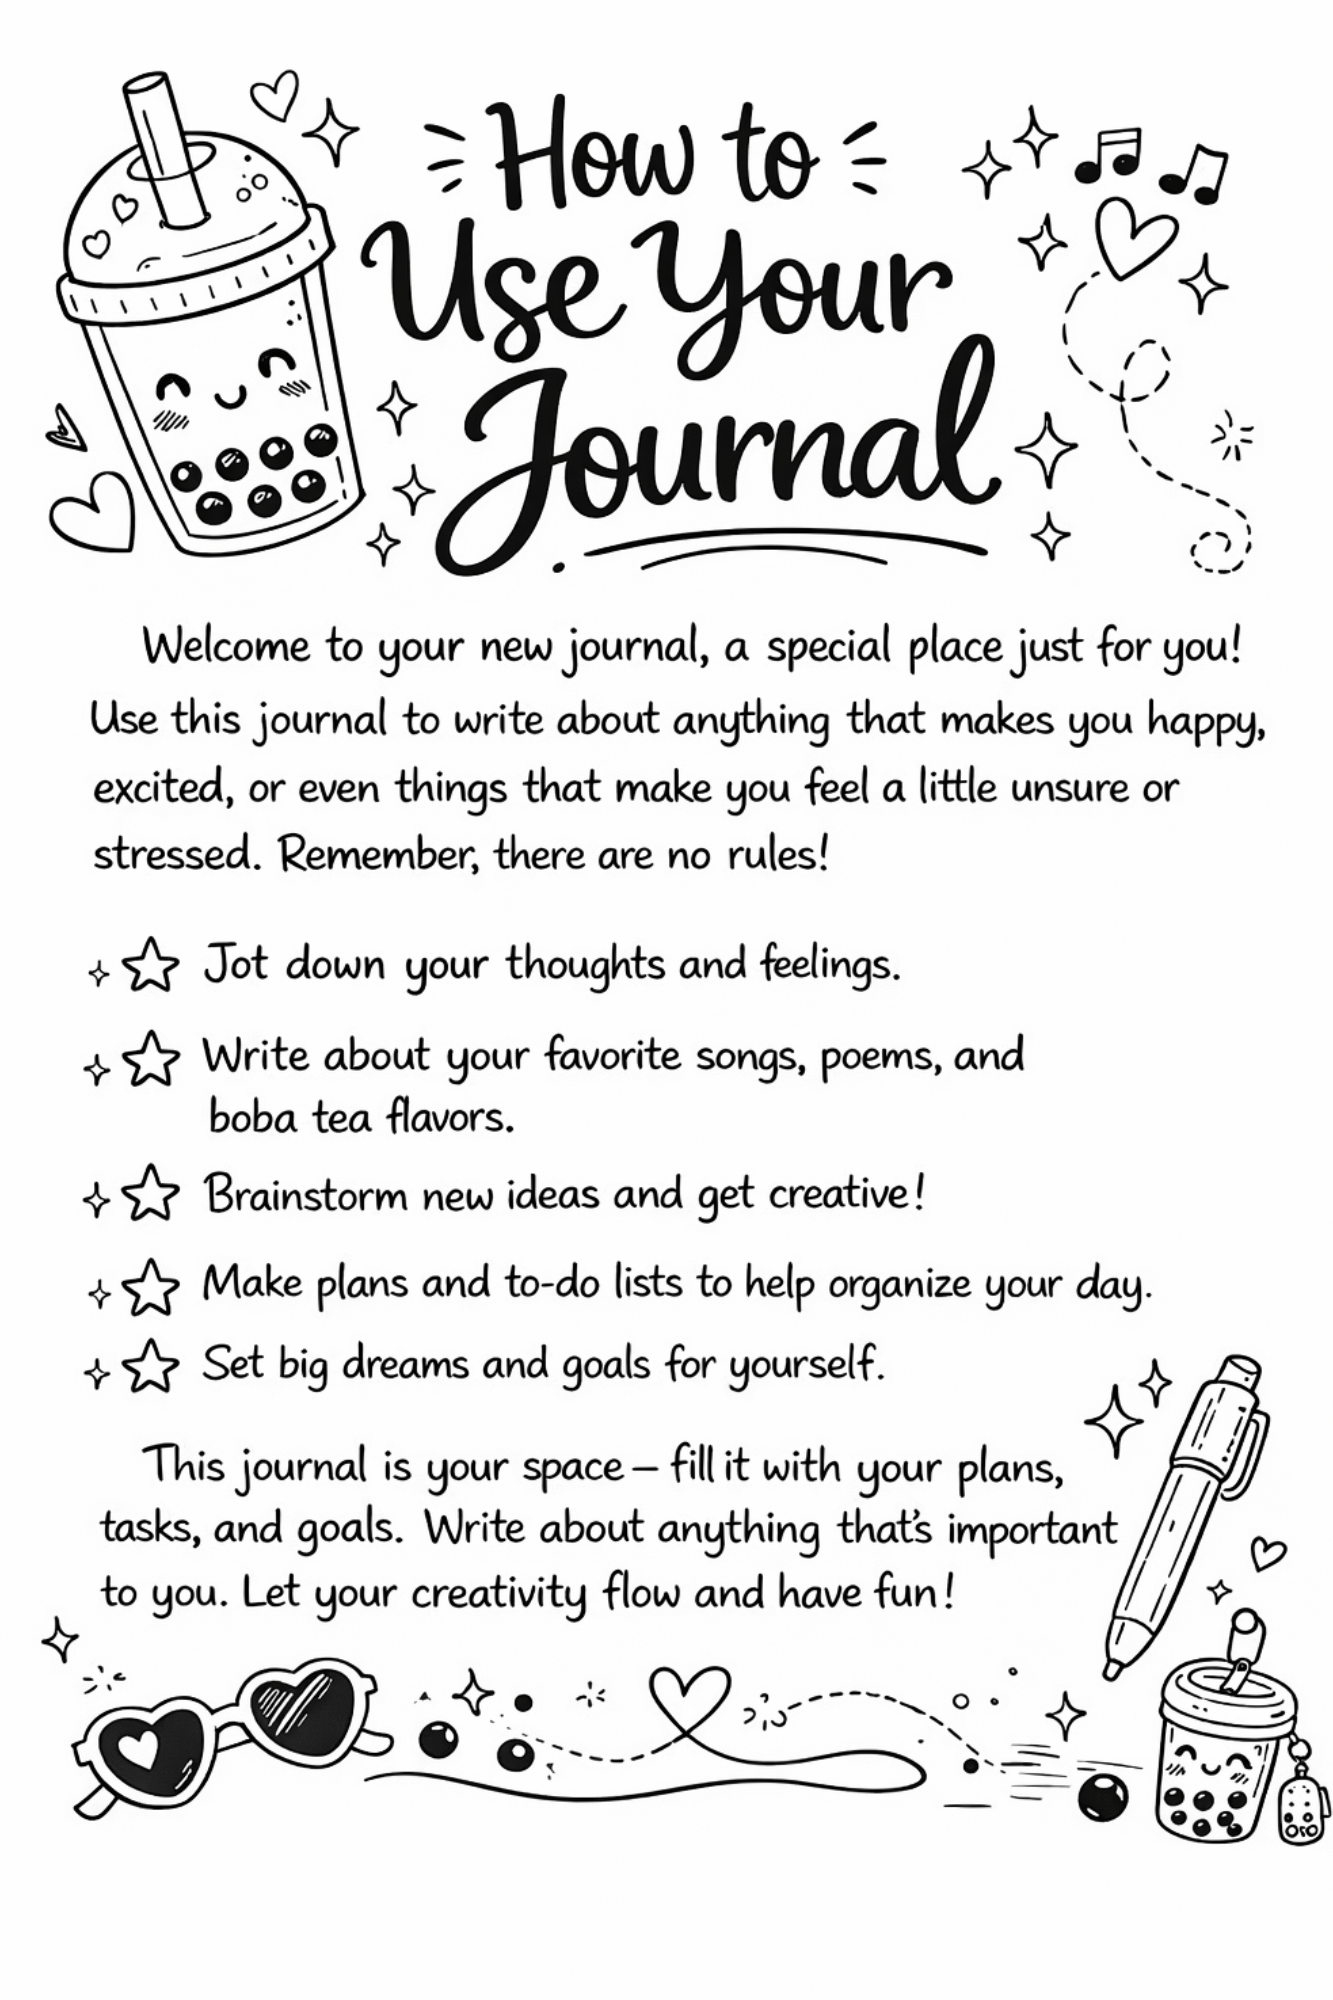 How to
Use Your
Journal
Welcome to your new journal, a special place just for you!
Use this journal to write about anything that makes you happy,
excited, or even things that make you feel a little unsure or
stressed. Remember, there are no rules!
Jot down your thoughts and feelings.
Write about your favorite songs, poems, and
boba tea flavors.
Brainstorm new ideas and get creative!
Make plans and to-do lists to help organize your day.
Set big dreams and goals for yourself.
This journal is your space – fill it with your plans,
tasks, and goals. Write about anything that's important
to you. Let your creativity flow and have fun!